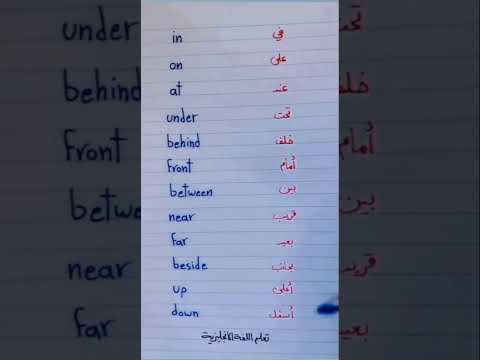 in في
on على
at عند
under تحت
behind خلف
front أمام
between بين
near قريب
far بعيد
beside بجانب
up أعلى
down أسفل
تعلم اللغة الانجليزية